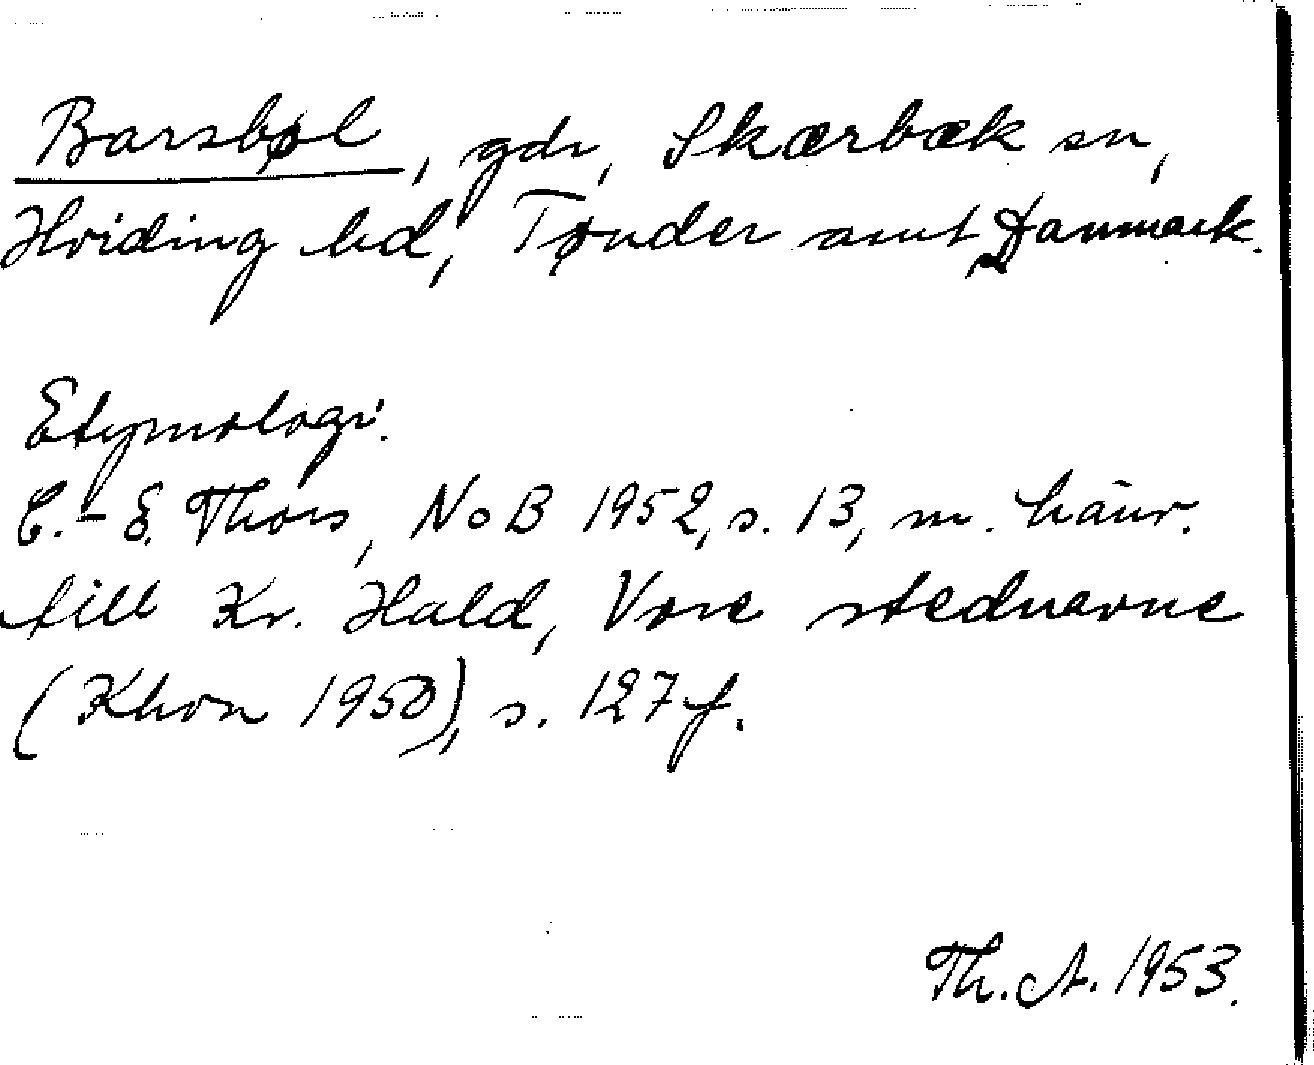 Barsbøl, gdr, Skærbæk sn,
Hviding hd, Tønder amt, Danmark.
Etymologi.
C.-E. Thors, NoB 1952, s. 13, m. hänv.
till Kr. Hald, Vore stednavne
(Khvn 1950), s. 127 f.
Th. A. 1953.